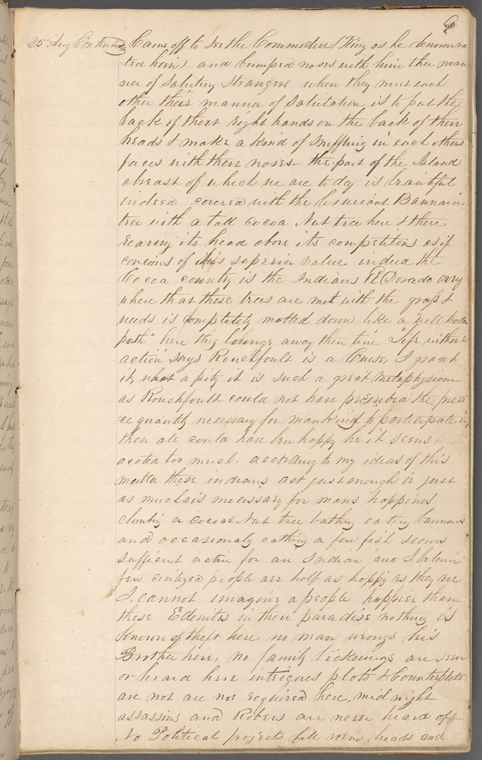 25 Aug Continued Came off to see the Commodore (King as he denomina
ted him) and bumped noses with him their man
ner of saluting strangers when they meet each
other their manner of salutation is to put the
back of their right hands on the back of their
heads & make a kind of snuffling in each others
faces with their noses – the part of the Island
abreast of which we are to day is beautiful
indeed covered with the luxuriant Bannana
tree with a tall cocoa Nut tree here & there
rearing its head above its competitors as if
concious of its superior value indeed the
Cocoa country is the Indians El Dorado every
where that these trees are met with the grass &
weeds is completely matted down like a well
path here they lounge away their time "Life without
action" says is a Curse, I grant
it, what a pity it is such a great metaphysician
as could not have the
quantity necessary for mankind to participate in
then all could have been happy he it seems
acted too much. according to my ideas of this
matter these indians act just enough or just
as much as is necessary for mans happiness
climbing a cocoa Nut tree bathing eating bannanas
and occasionaly catching a few fish seems
sufficient action for an Indian and I believe
few civilized people are half as happy as they are
I cannot imagine a people happier than
these Edenites in their paradise nothing is
known of theft here no man wrongs his
Brother here, no family bickerings are seen
or heard here intrigues plots & Counterplots
are not are not required here, mid night
assassins and Robers are never heard off
No Political projects fill mens heads and